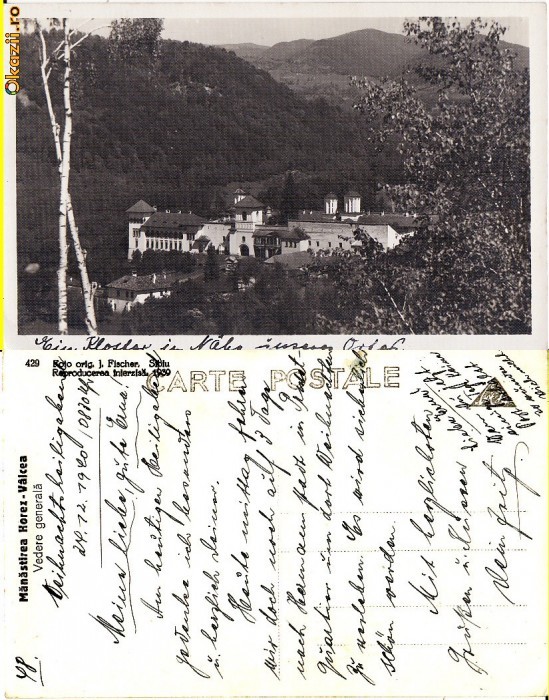 Okazii.ro
Ein Kloster in Nähe unseres Ortes
429 Foto orig. J. Fischer, Sibiu
Reproducerea interzisă, 1939
CARTE POSTALE
Mânăstirea Horez-Vâlcea
Vedere generală
48.
Weihnachtsheiligabend
24.12.1940
Meine liebe, gute Erna,
Am heutigen Heiligabend
gedenke ich besonders
u. herzlich deiner.
Heute mittag fahren
wir doch noch auf 3 Tage
nach Hermannstadt in
Quartier um dort Weihnachten
zu verleben. Es wird sicherlich
schön werden.
Mit herzlichsten
Grüßen u. Küssen
Dein Fritz